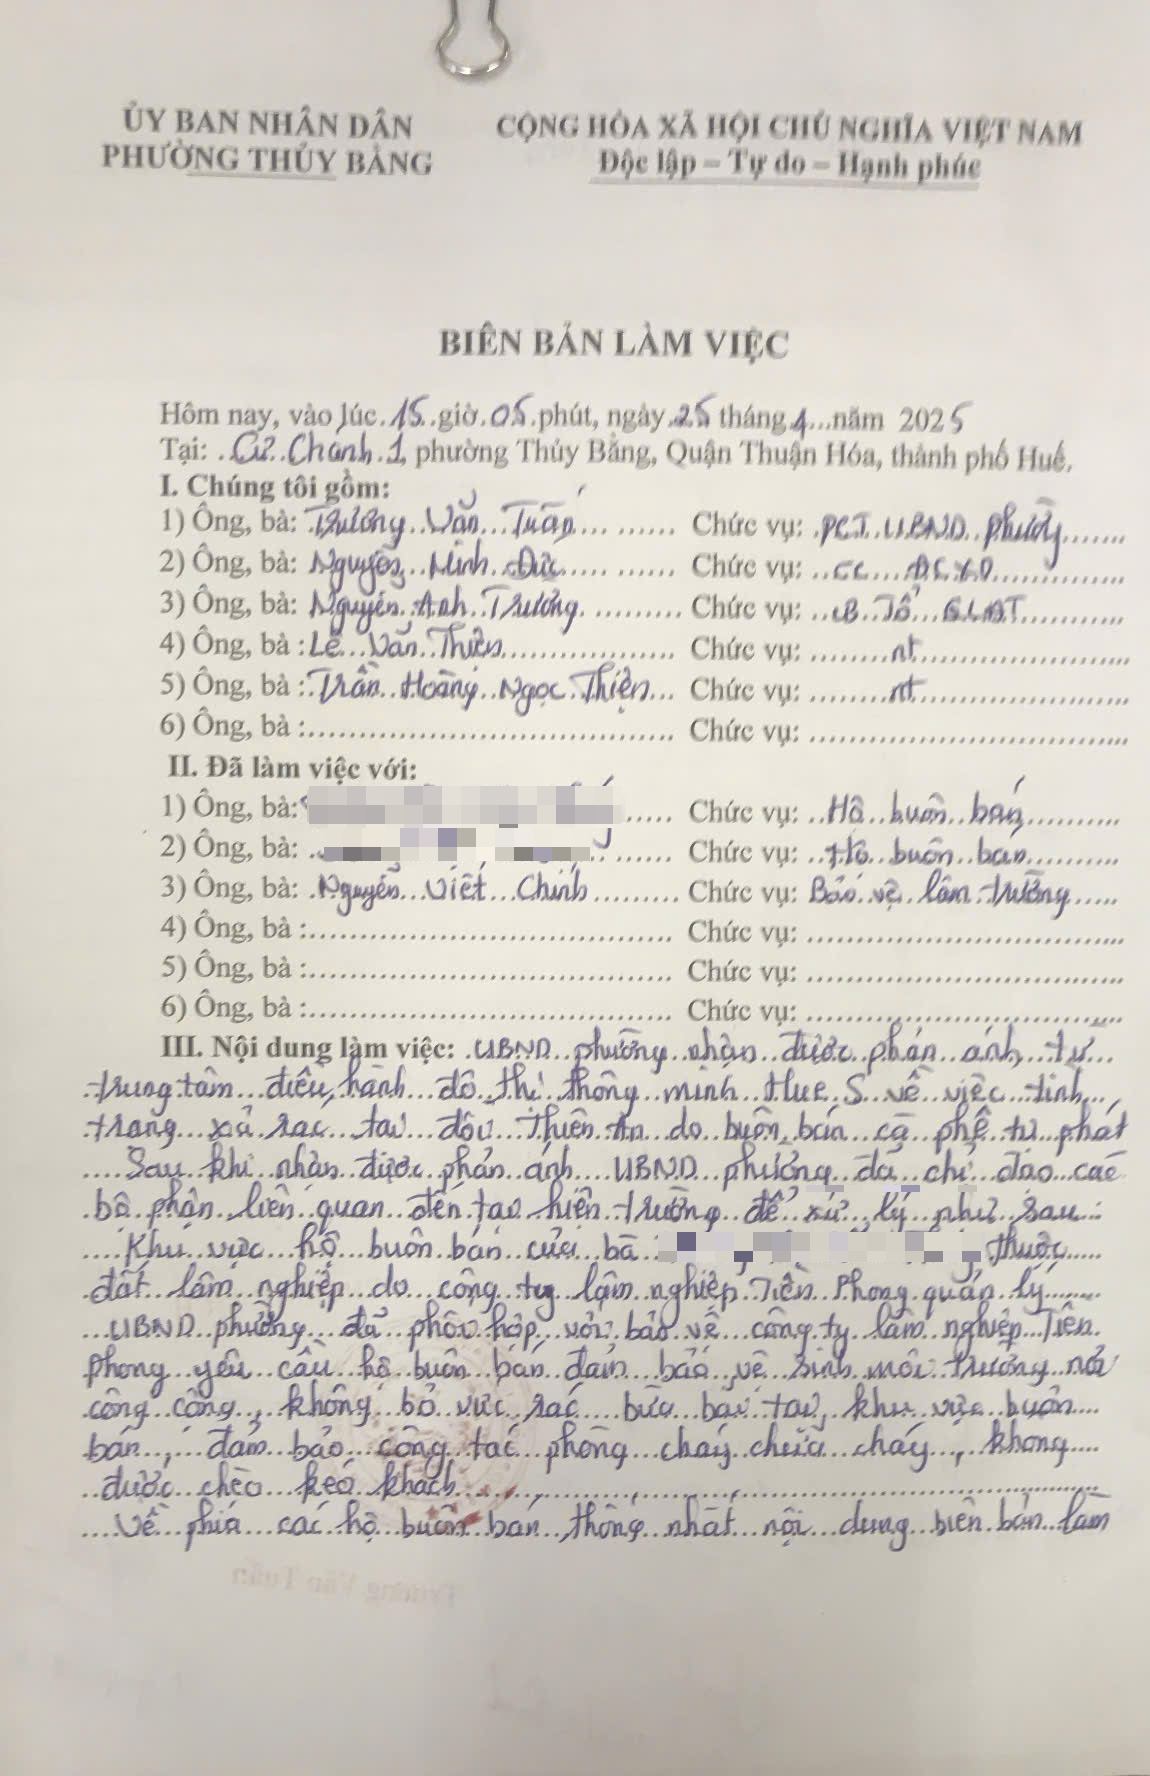 ỦY BAN NHÂN DÂN
PHƯỜNG THỦY BẰNG
CỘNG HÒA XÃ HỘI CHỦ NGHĨA VIỆT NAM
Độc lập – Tự do – Hạnh phúc
BIÊN BẢN LÀM VIỆC
Hôm nay, vào lúc 15 giờ 05 phút, ngày 25 tháng 4 năm 2025
Tại: Cư Chánh 1, phường Thủy Bằng, Quận Thuận Hóa, thành phố Huế.
I. Chúng tôi gồm:
1) Ông, bà: Trương Văn Tuấn Chức vụ: PCT UBND phường
2) Ông, bà: Nguyễn Minh Đức Chức vụ: CC ĐCXD
3) Ông, bà: Nguyễn Anh Trường Chức vụ: Tổ
4) Ông, bà : Lê Văn Thiện Chức vụ: nt
5) Ông, bà : Trần Hoàng Ngọc Thiện Chức vụ: nt
6) Ông, bà : Chức vụ:
II. Đã làm việc với:
1) Ông, bà: Chức vụ: Hộ buôn bán
2) Ông, bà: Chức vụ: Hộ buôn bán
3) Ông, bà: Nguyễn Viết Chính Chức vụ: Bảo vệ lâm trường
4) Ông, bà : Chức vụ:
5) Ông, bà : Chức vụ:
6) Ông, bà : Chức vụ:
III. Nội dung làm việc: UBND phường nhận được phản ánh từ
trung tâm điều hành đô thị thông minh Hue S về việc tình
trạng xả rác tại đồi Thiên An do buôn bán cà phê tự phát
Sau khi nhận được phản ánh UBND phường đã chỉ đạo các
bộ phận liên quan đến tại hiện trường để xử lý như sau:
Khu vực hộ buôn bán của bà thuộc
đất lâm nghiệp do công ty lâm nghiệp Tiền Phong quản lý
UBND phường đã phối hợp với bảo vệ công ty lâm nghiệp Tiền
Phong yêu cầu hộ buôn bán đảm bảo vệ sinh môi trường nơi
công cộng, không bỏ vứt rác bừa bãi tại khu vực buôn
bán, đảm bảo công tác phòng cháy chữa cháy, không
được chèo kéo khách
Về phía các hộ buôn bán thống nhất nội dung biên bản làm
Trương Văn Tuấn